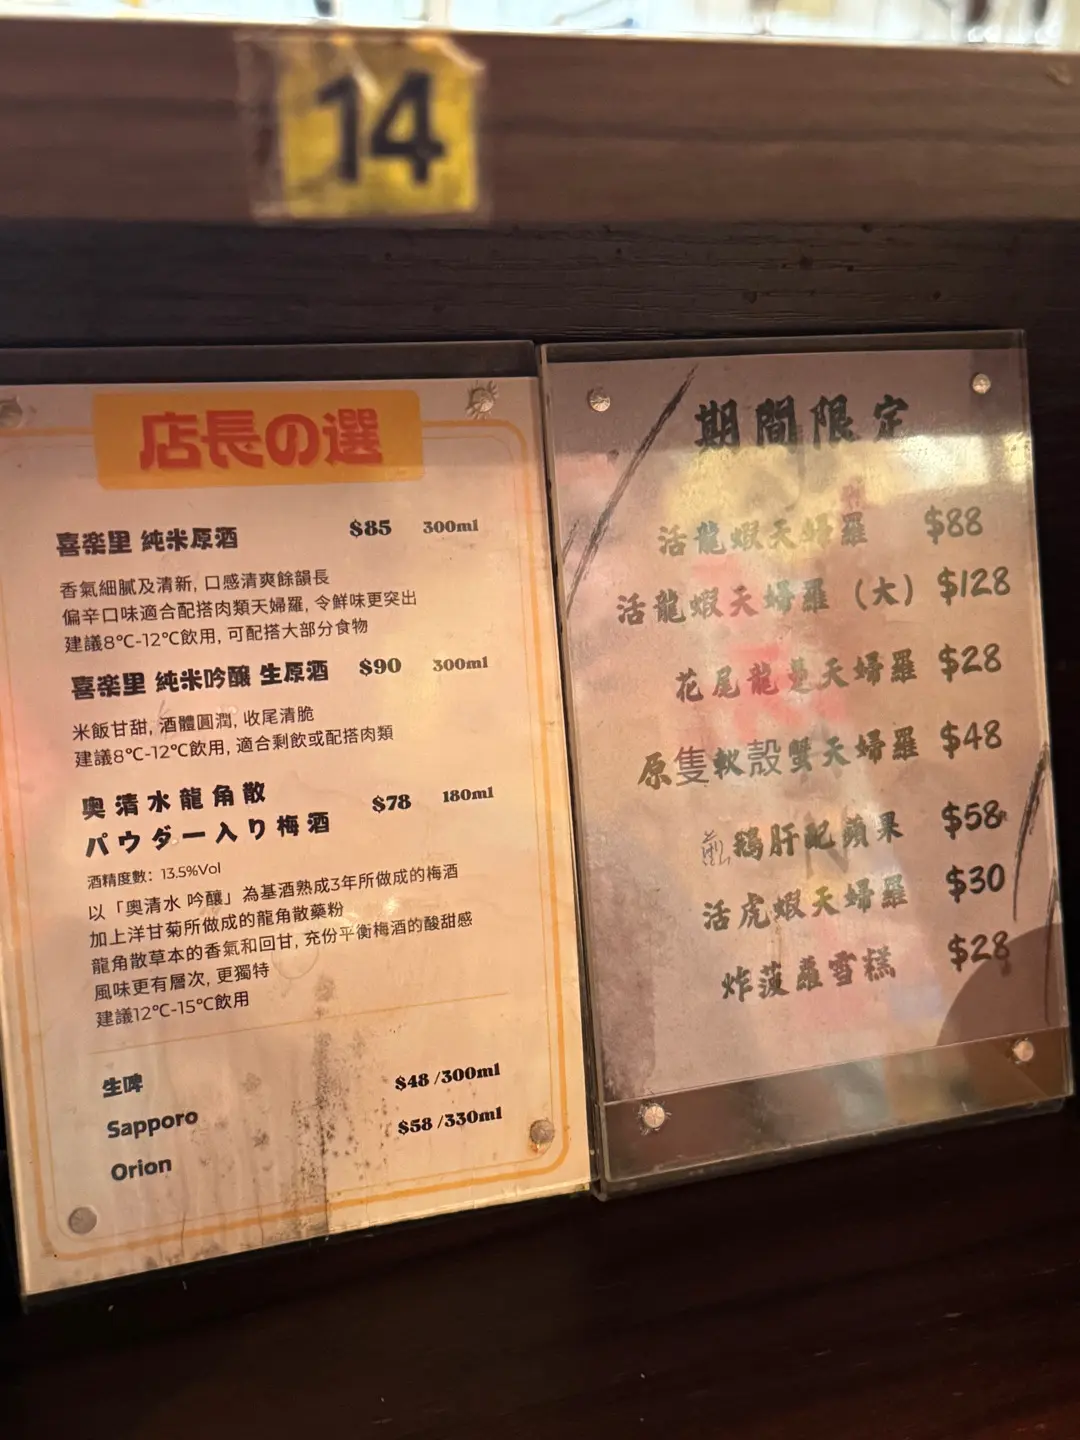 14
店長の選
喜楽里 純米原酒 $85 300ml
香氣細膩及清新, 口感清爽餘韻長
偏辛口味適合配搭肉類天婦羅, 令鮮味更突出
建議8℃-12℃飲用, 可配搭大部分食物
喜楽里 純米吟釀 生原酒 $90 300ml
米飯甘甜, 酒體圓潤, 收尾清脆
建議8℃-12℃飲用, 適合剩飲或配搭肉類
奥清水龍角散
パウダー入り梅酒 $78 180ml
酒精度數：13.5%Vol
以「奧清水 吟釀」為基酒熟成3年所做成的梅酒
加上洋甘菊所做成的龍角散藥粉
龍角散草本的香氣和回甘, 充份平衡梅酒的酸甜感
風味更有層次, 更獨特
建議12℃-15℃飲用
生啤
Sapporo $48 /300ml
Orion $58 /330ml
期間限定
活龍蝦天婦羅 $88
活龍蝦天婦羅（大） $128
花尾龍躉天婦羅 $28
原隻軟殼蟹天婦羅 $48
煎鵝肝配蘋果 $58
活虎蝦天婦羅 $30
炸菠蘿雪糕 $28